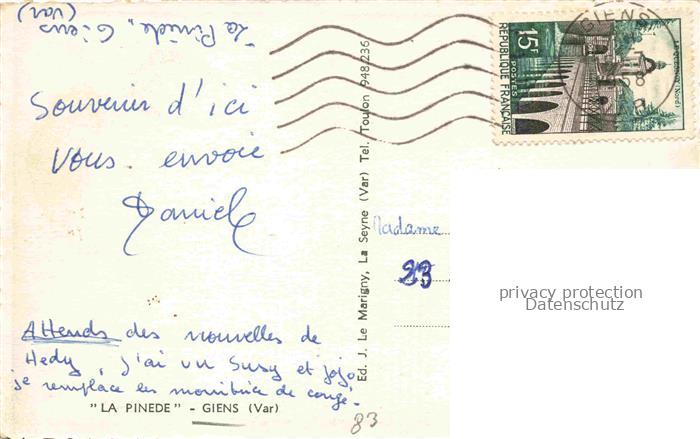 "La Pinède, Giens
(Var)
Souvenir d'ici
vous envoie
Daniel
Attends des nouvelles de
Hedy, j'ai vu Susy et jojo,
je remplace les monitrice de conge.
"LA PINEDE" - GIENS (Var)
Ed. J. Le Marigny, La Seyne (Var) Tel. Toulon 948/236
GIENS
58
15F
POSTES
REPUBLIQUE FRANÇAISE
LE QUESNOY (Nord)
Madame
83
privacy protection
Datenschutz
83